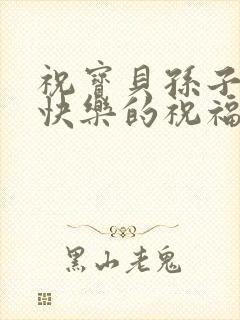 祝寶貝孫子
快樂的祝福
黑山老鬼